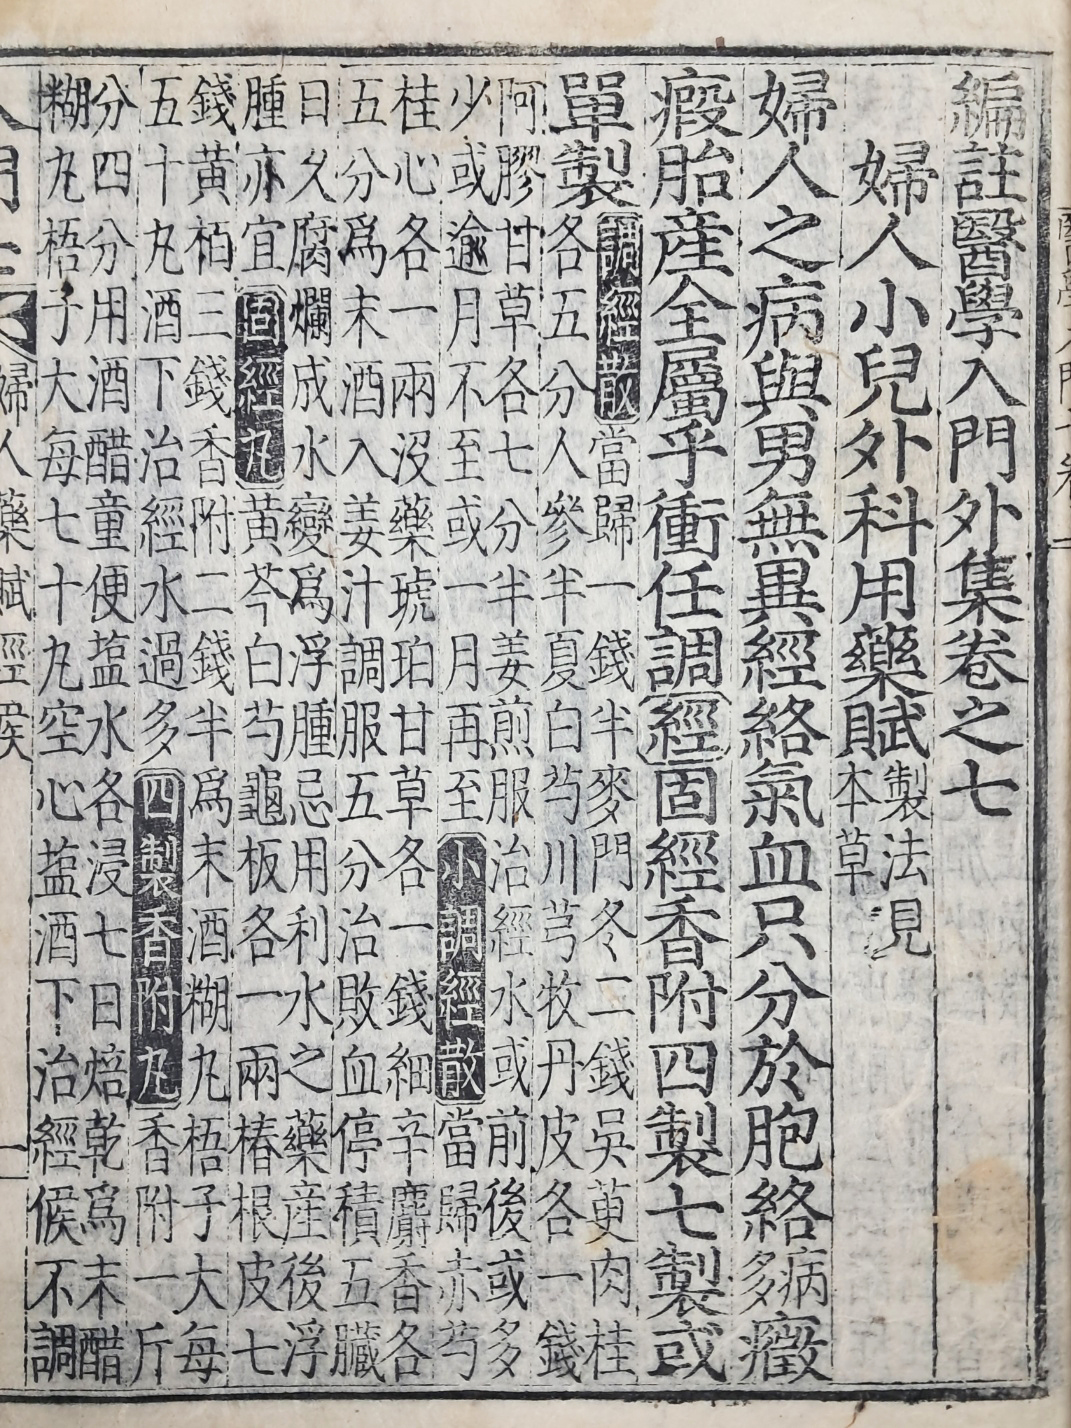 編註醫學入門外集卷之七
婦人小兒外科用藥賦
製法見
本草
婦人之病與男無異經絡氣血只分於胞絡
病
多
癥
瘕胎産全屬乎衝任調經固經香附四製七製或
單製
調經散當歸一錢半麥門冬二錢吳茰肉桂
各五分人參半夏白芍川芎牧丹皮各一錢
阿膠甘草各七分半姜煎服治經水或前後或多
少或逾月不至或一月再至小調經散當歸赤芍
桂心各一兩沒藥琥珀甘草各一錢細辛麝香各
五分爲末酒入姜汁調服五分治敗血停積五臟
日久腐爛成水變爲浮腫忌用利水之藥産後浮
腫亦宜固經丸黃芩白芍龜板各一兩椿根皮七
錢黃栢三錢香附二錢半爲末酒糊丸梧子大每
五十丸酒下治經水過多四製香附丸香附一斤
分四分用酒醋童便塩水各浸七日焙乾爲末醋
糊丸梧子大每七十丸空心塩酒下治經候不調
婦人藥賦經候 一